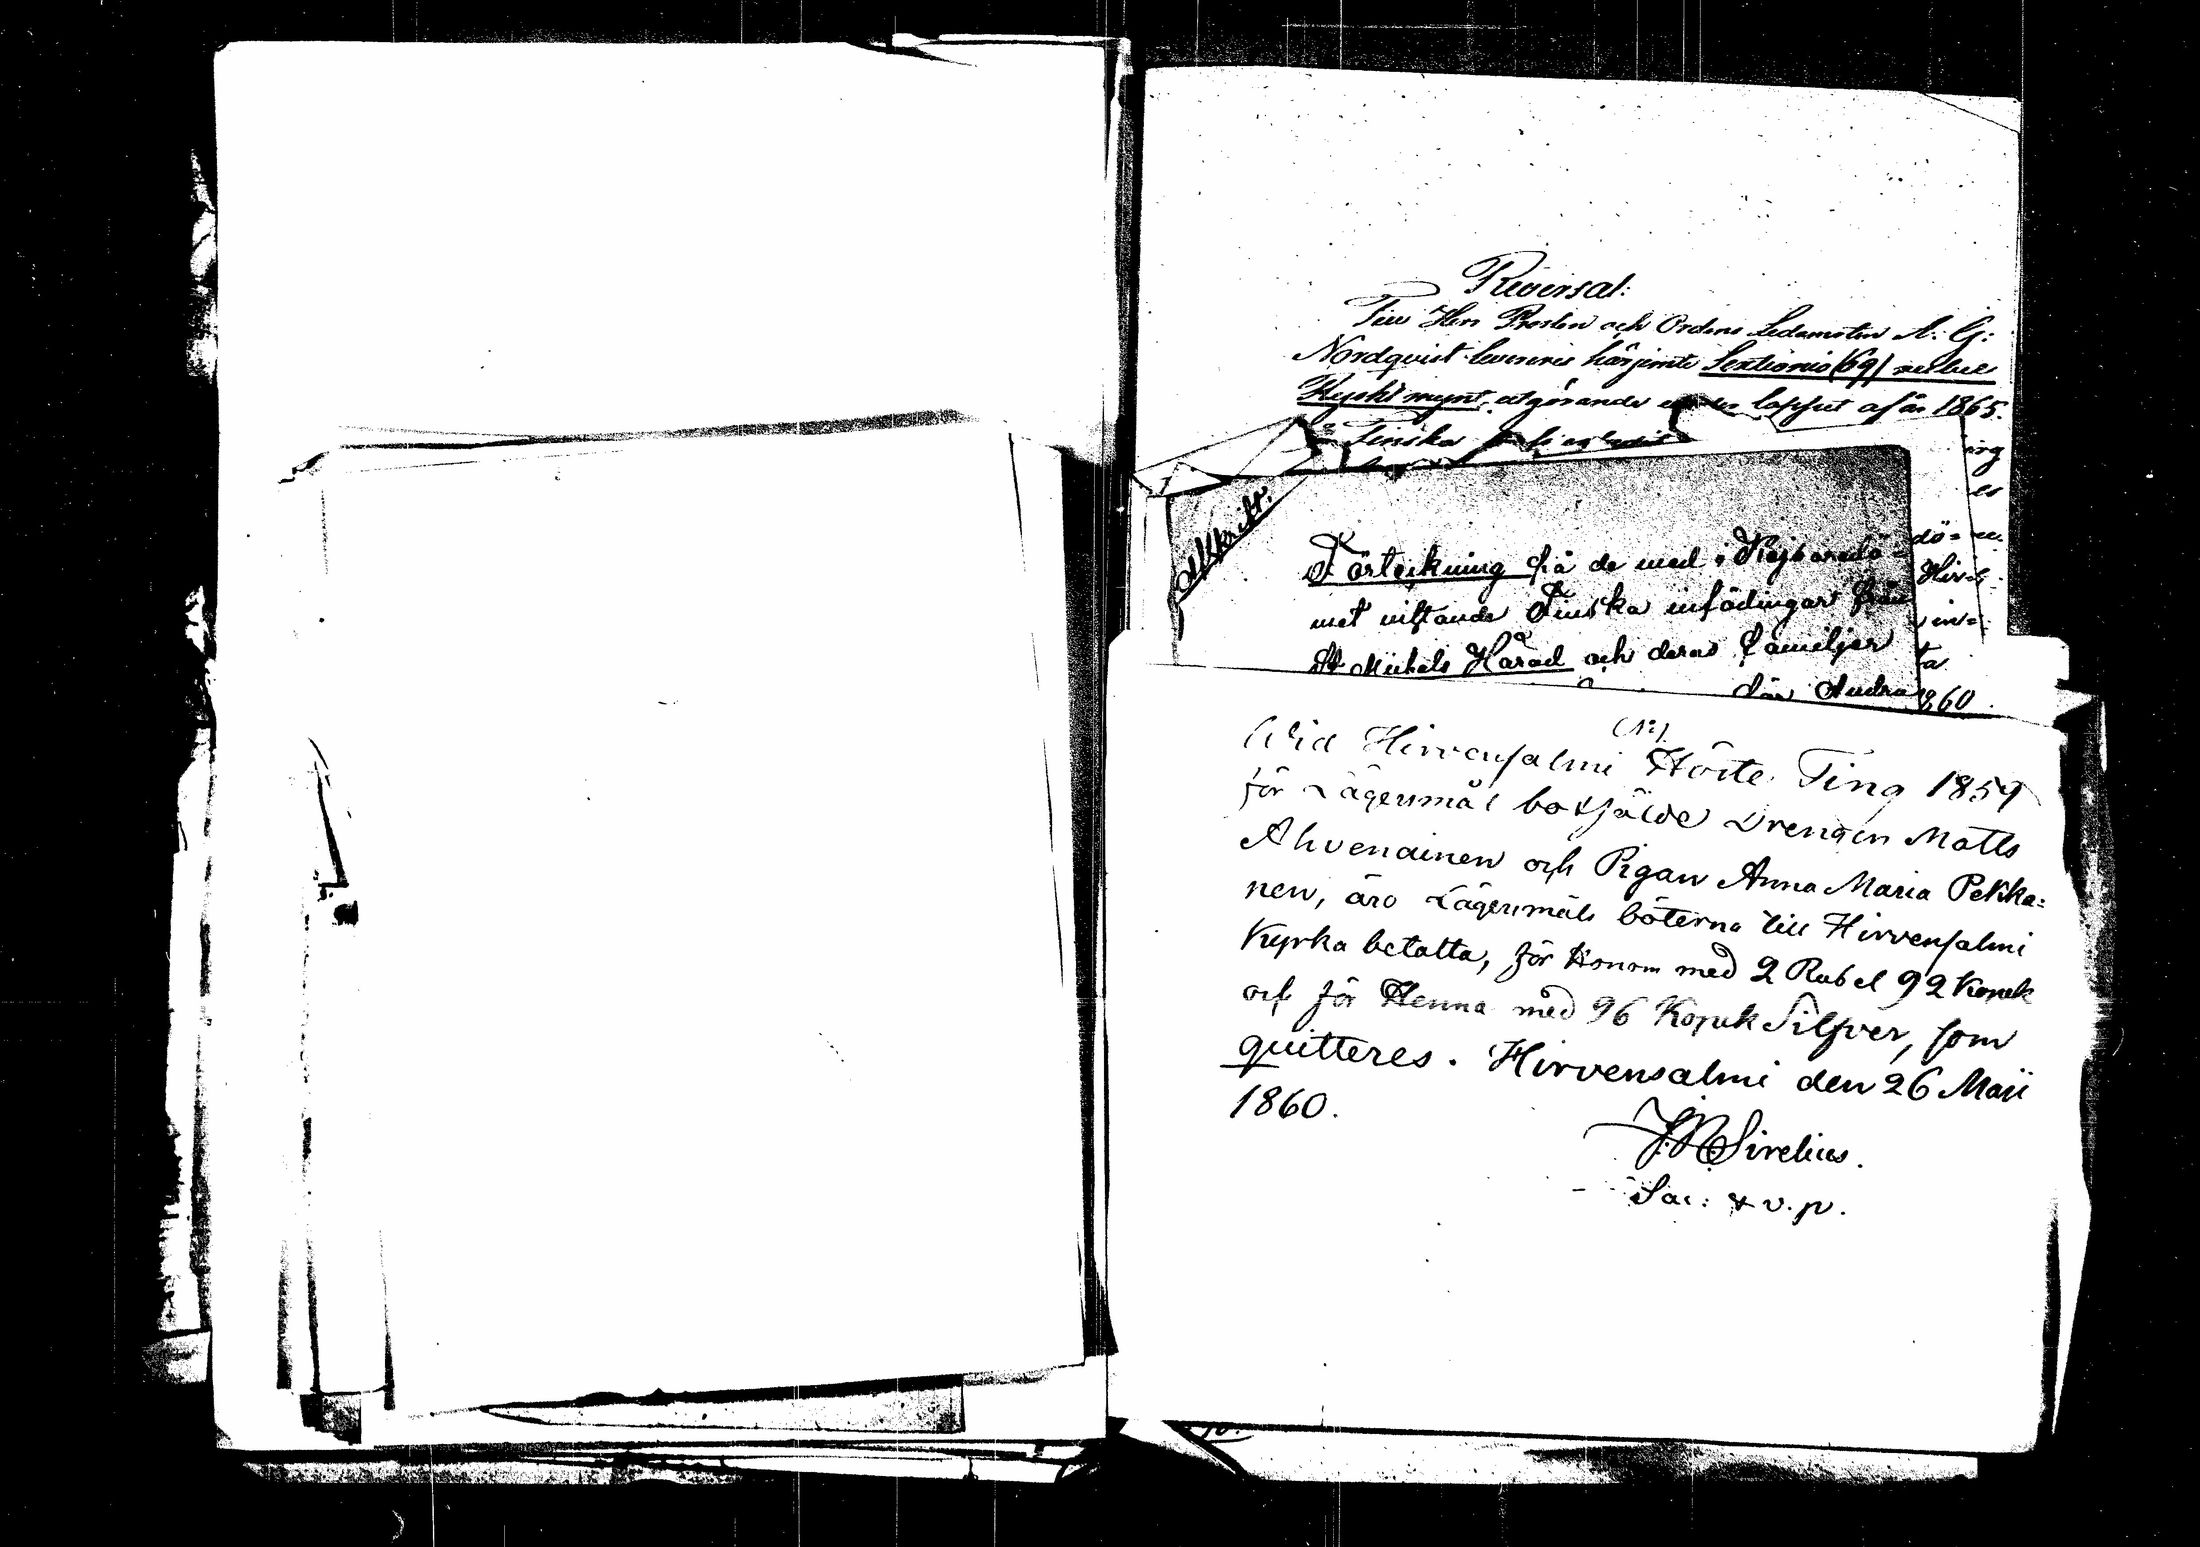 Reversal:
Till Herr Prosten och Ordens Ledamoten A: G:
Nordqvist levereres härjemte Sextionio (69) rubel
Ryskt mynt, utgörande loppet af år 1865.
Finska
Afskrift.
Förteckning på de med i Kejsaredö=
met vistande Finska infödingar från
St Michels Härad och deras Familjer
för Andra
dö=
Hirv
in=
ta
1860
(N:1)
Wid Hirvensalmi Höste Ting 1859
för Lägersmål botfälde Drengen Matts
Ahvenainen och Pigan Anna Maria Pekka=
nen, äro Lägersmåls böterna till Hirvensalmi
Kyrka betalta, för Honom med 2 Rubel 92 Kopek
och för Henna med 96 Kopek Silfver, som
quitteres. Hirvensalmi den 26 Maji
1860.
Sirelius.
Sac: & v. p.